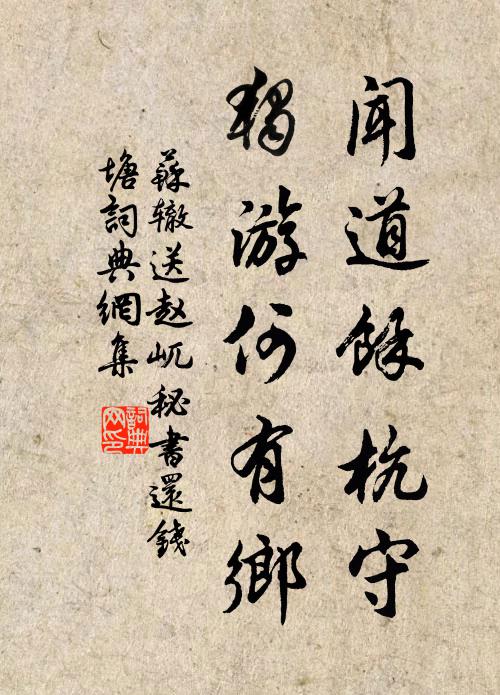 聞道餘杭守
獨游何有鄉
蘇辙送赵屼秘書還錢
塘詞典網集
詞典
网印